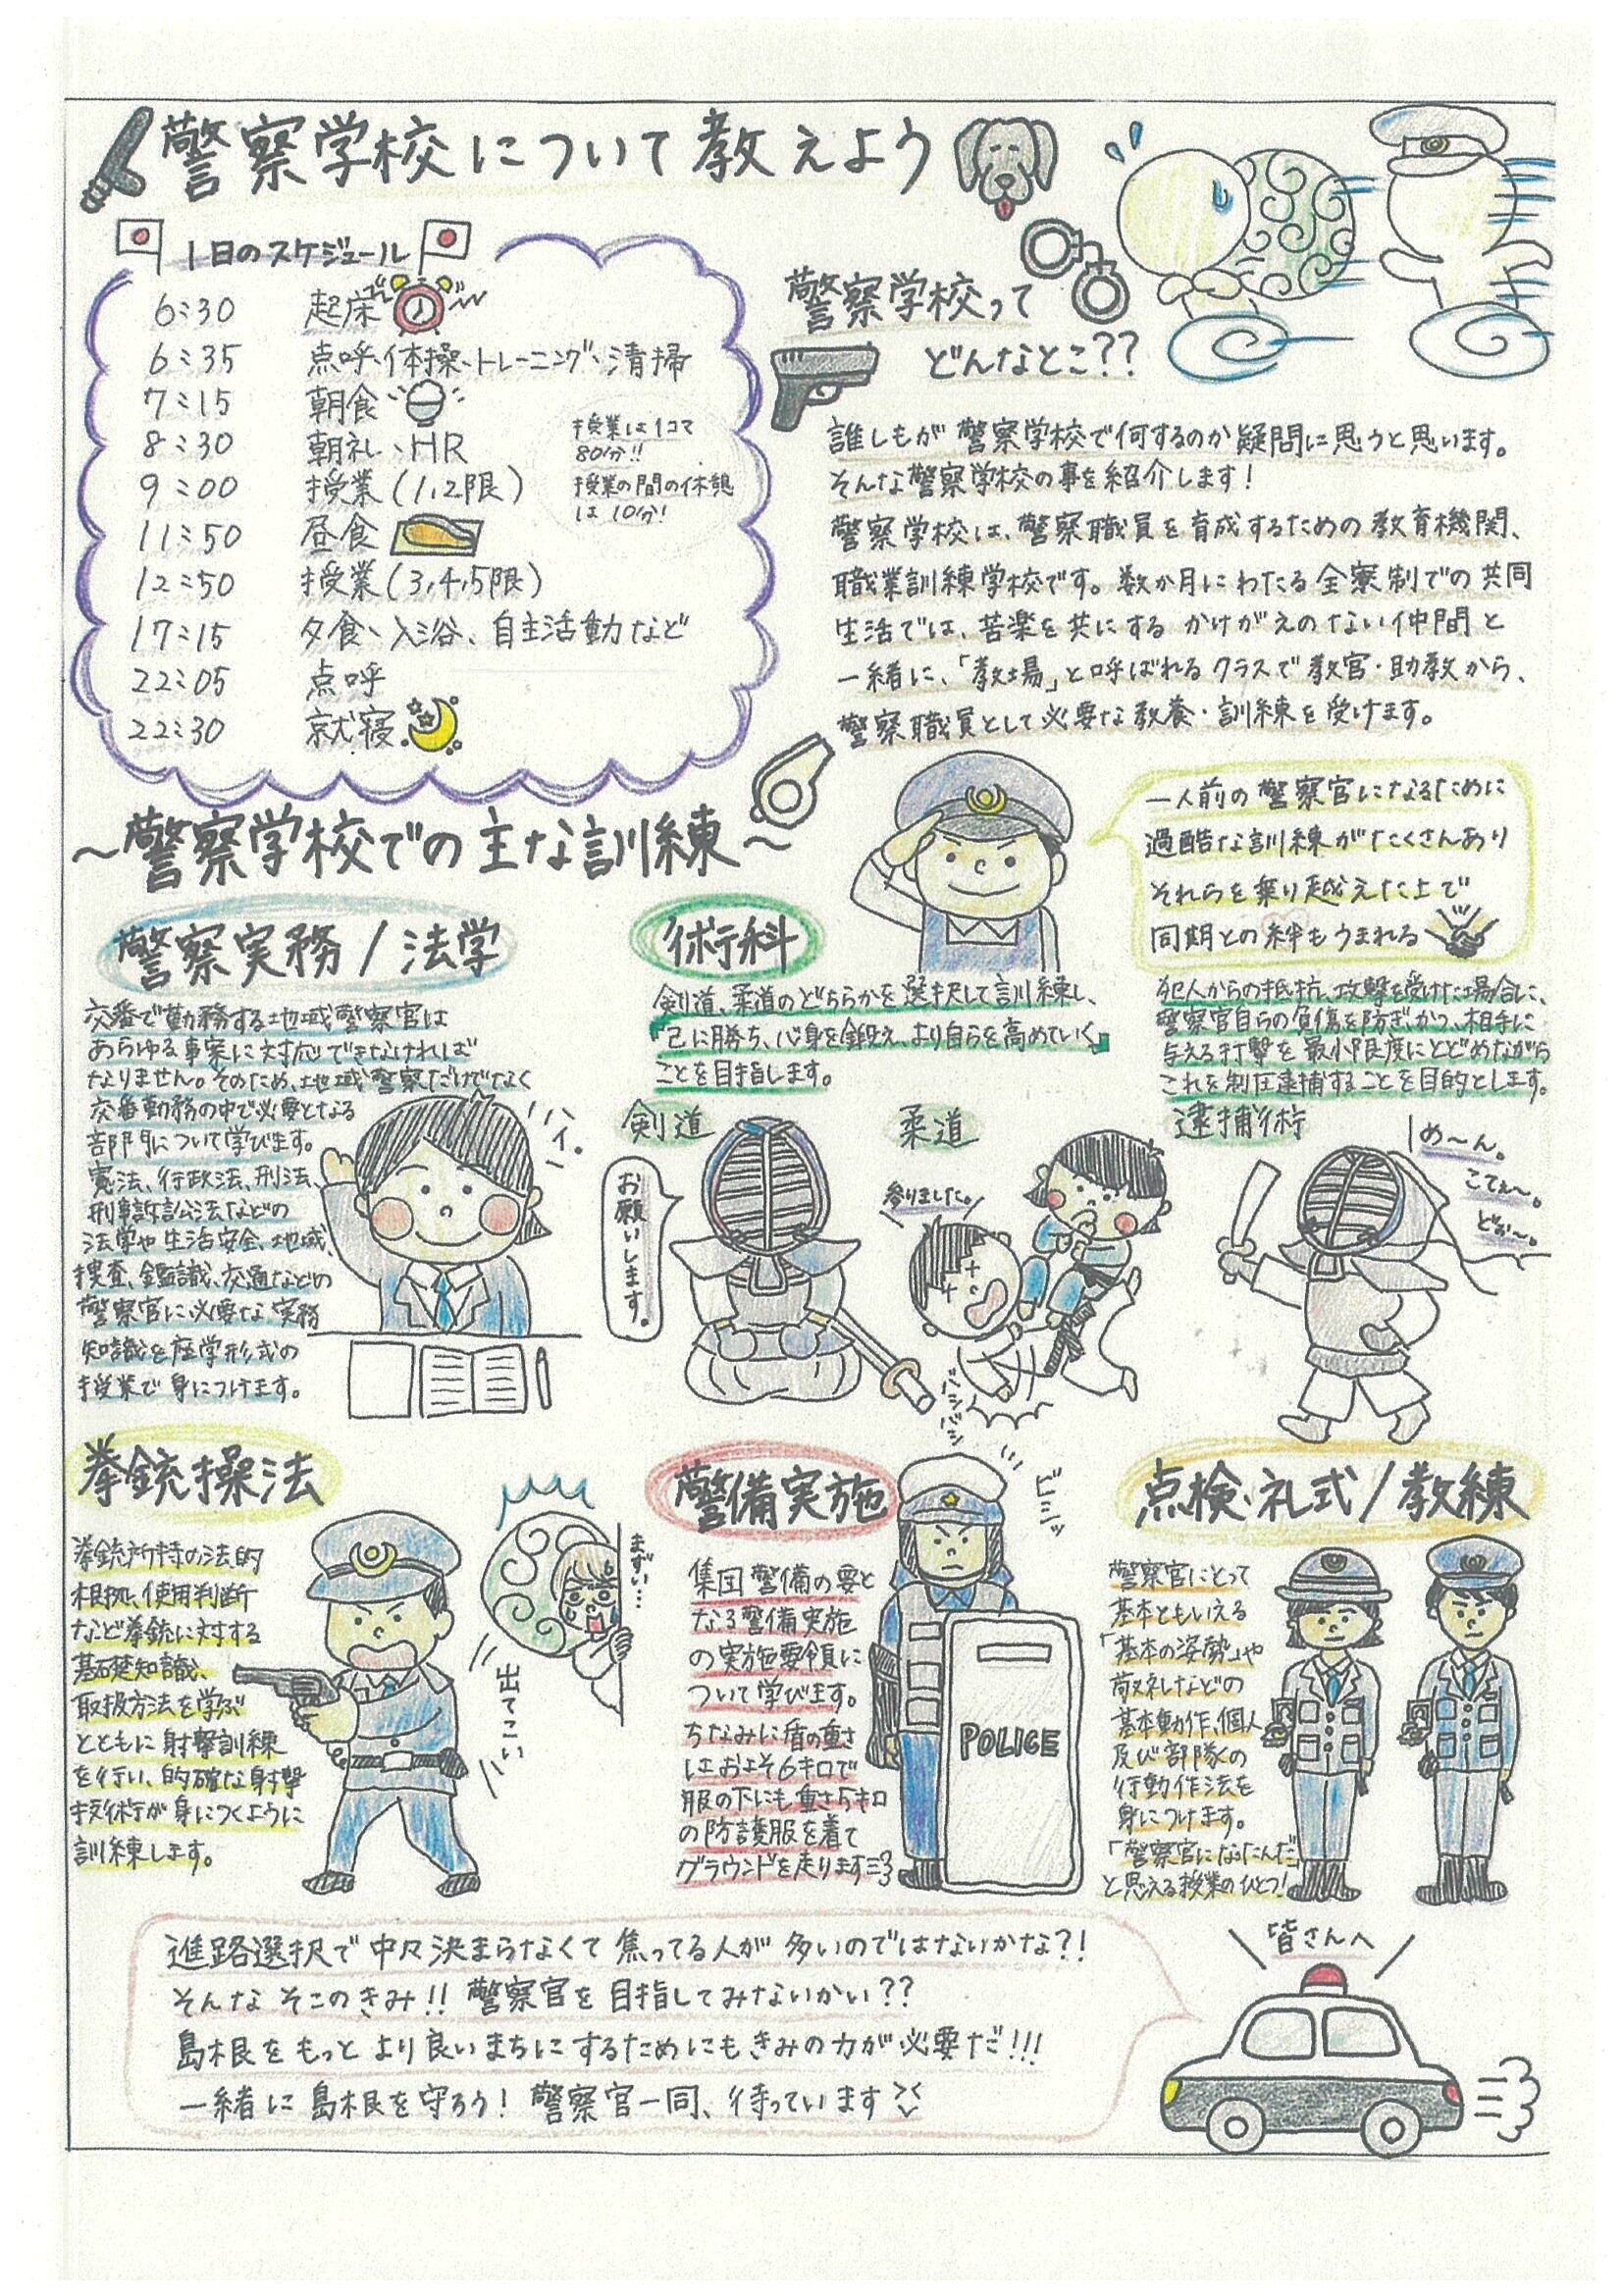 警察学校について教えよう
1日のスケジュール
6:30 起床
6:35 点呼、体操、トレーニング、清掃
7:15 朝食
8:30 朝礼、HR
9:00 授業(1,2限)
11:50 昼食
12:50 授業(3,4,5限)
17:15 夕食、入浴、自主活動など
22:05 点呼
22:30 就寝
授業は1コマ
80分!!
授業の間の休憩
は10分!
警察学校って
どんなとこ??
誰しもが警察学校で何するのか疑問に思うと思います。
そんな警察学校の事を紹介します!
警察学校は、警察職員を育成するための教育機関、
職業訓練学校です。数か月にわたる全寮制での共同
生活では、苦楽を共にするかけがえのない仲間と
一緒に、「教場」と呼ばれるクラスで教官・助教から、
警察職員として必要な教養・訓練を受けます。
一人前の警察官になるために
過酷な訓練がたくさんあり
それらを乗り越えた上で
同期との絆もうまれる
～警察学校での主な訓練～
警察実務/法学
交番で勤務する地域警察官は
あらゆる事案に対応できなければ
なりません。そのため、地域警察だけでなく
交番勤務の中で必要となる
部門について学びます。
憲法、行政法、刑法、
刑事訴訟法などの
法学や生活安全、地域、
捜査、鑑識、交通などの
警察官に必要な実務
知識を座学形式の
授業で身につけます。
ハイ。
術科
剣道、柔道のどちらかを選択して訓練し、
「己に勝ち、心身を鍛え、より自らを高めていく」
ことを目指します。
剣道
お願いします。
柔道
参りました。
バシバシ
犯人からの抵抗、攻撃を受けた場合に、
警察官自らの負傷を防ぎ、かつ、相手に
与える打撃を最小限度にとどめながら
これを制圧逮捕することを目的とします。
逮捕術
め～ん。
こてぇ～。
どぉ～。
拳銃操法
拳銃所持の法的
根拠、使用判断
など拳銃に対する
基礎知識、
取扱方法を学ぶ
とともに射撃訓練
を行い、的確な射撃
技術が身につくように
訓練します。
まずい…
出てこい
警備実施
集団警備の要と
なる警備実施
の実施要領に
ついて学びます。
ちなみに盾の重さ
はおよそ6キロで
服の下にも重さ5キロ
の防護服を着て
グラウンドを走ります
ビシッ
POLICE
点検、礼式/教練
警察官にとって
基本ともいえる
「基本の姿勢」や
敬礼などの
基本動作、個人
及び部隊の
行動作法を
身につけます。
「警察官になったんだ」
と思える授業のひとつ!
進路選択で中々決まらなくて焦ってる人が多いのではないかな?!
そんなそこのきみ!!警察官を目指してみないかい??
島根をもっとより良いまちにするためにもきみの力が必要だ!!!
一緒に島根を守ろう!警察官一同、待っています
皆さんへ